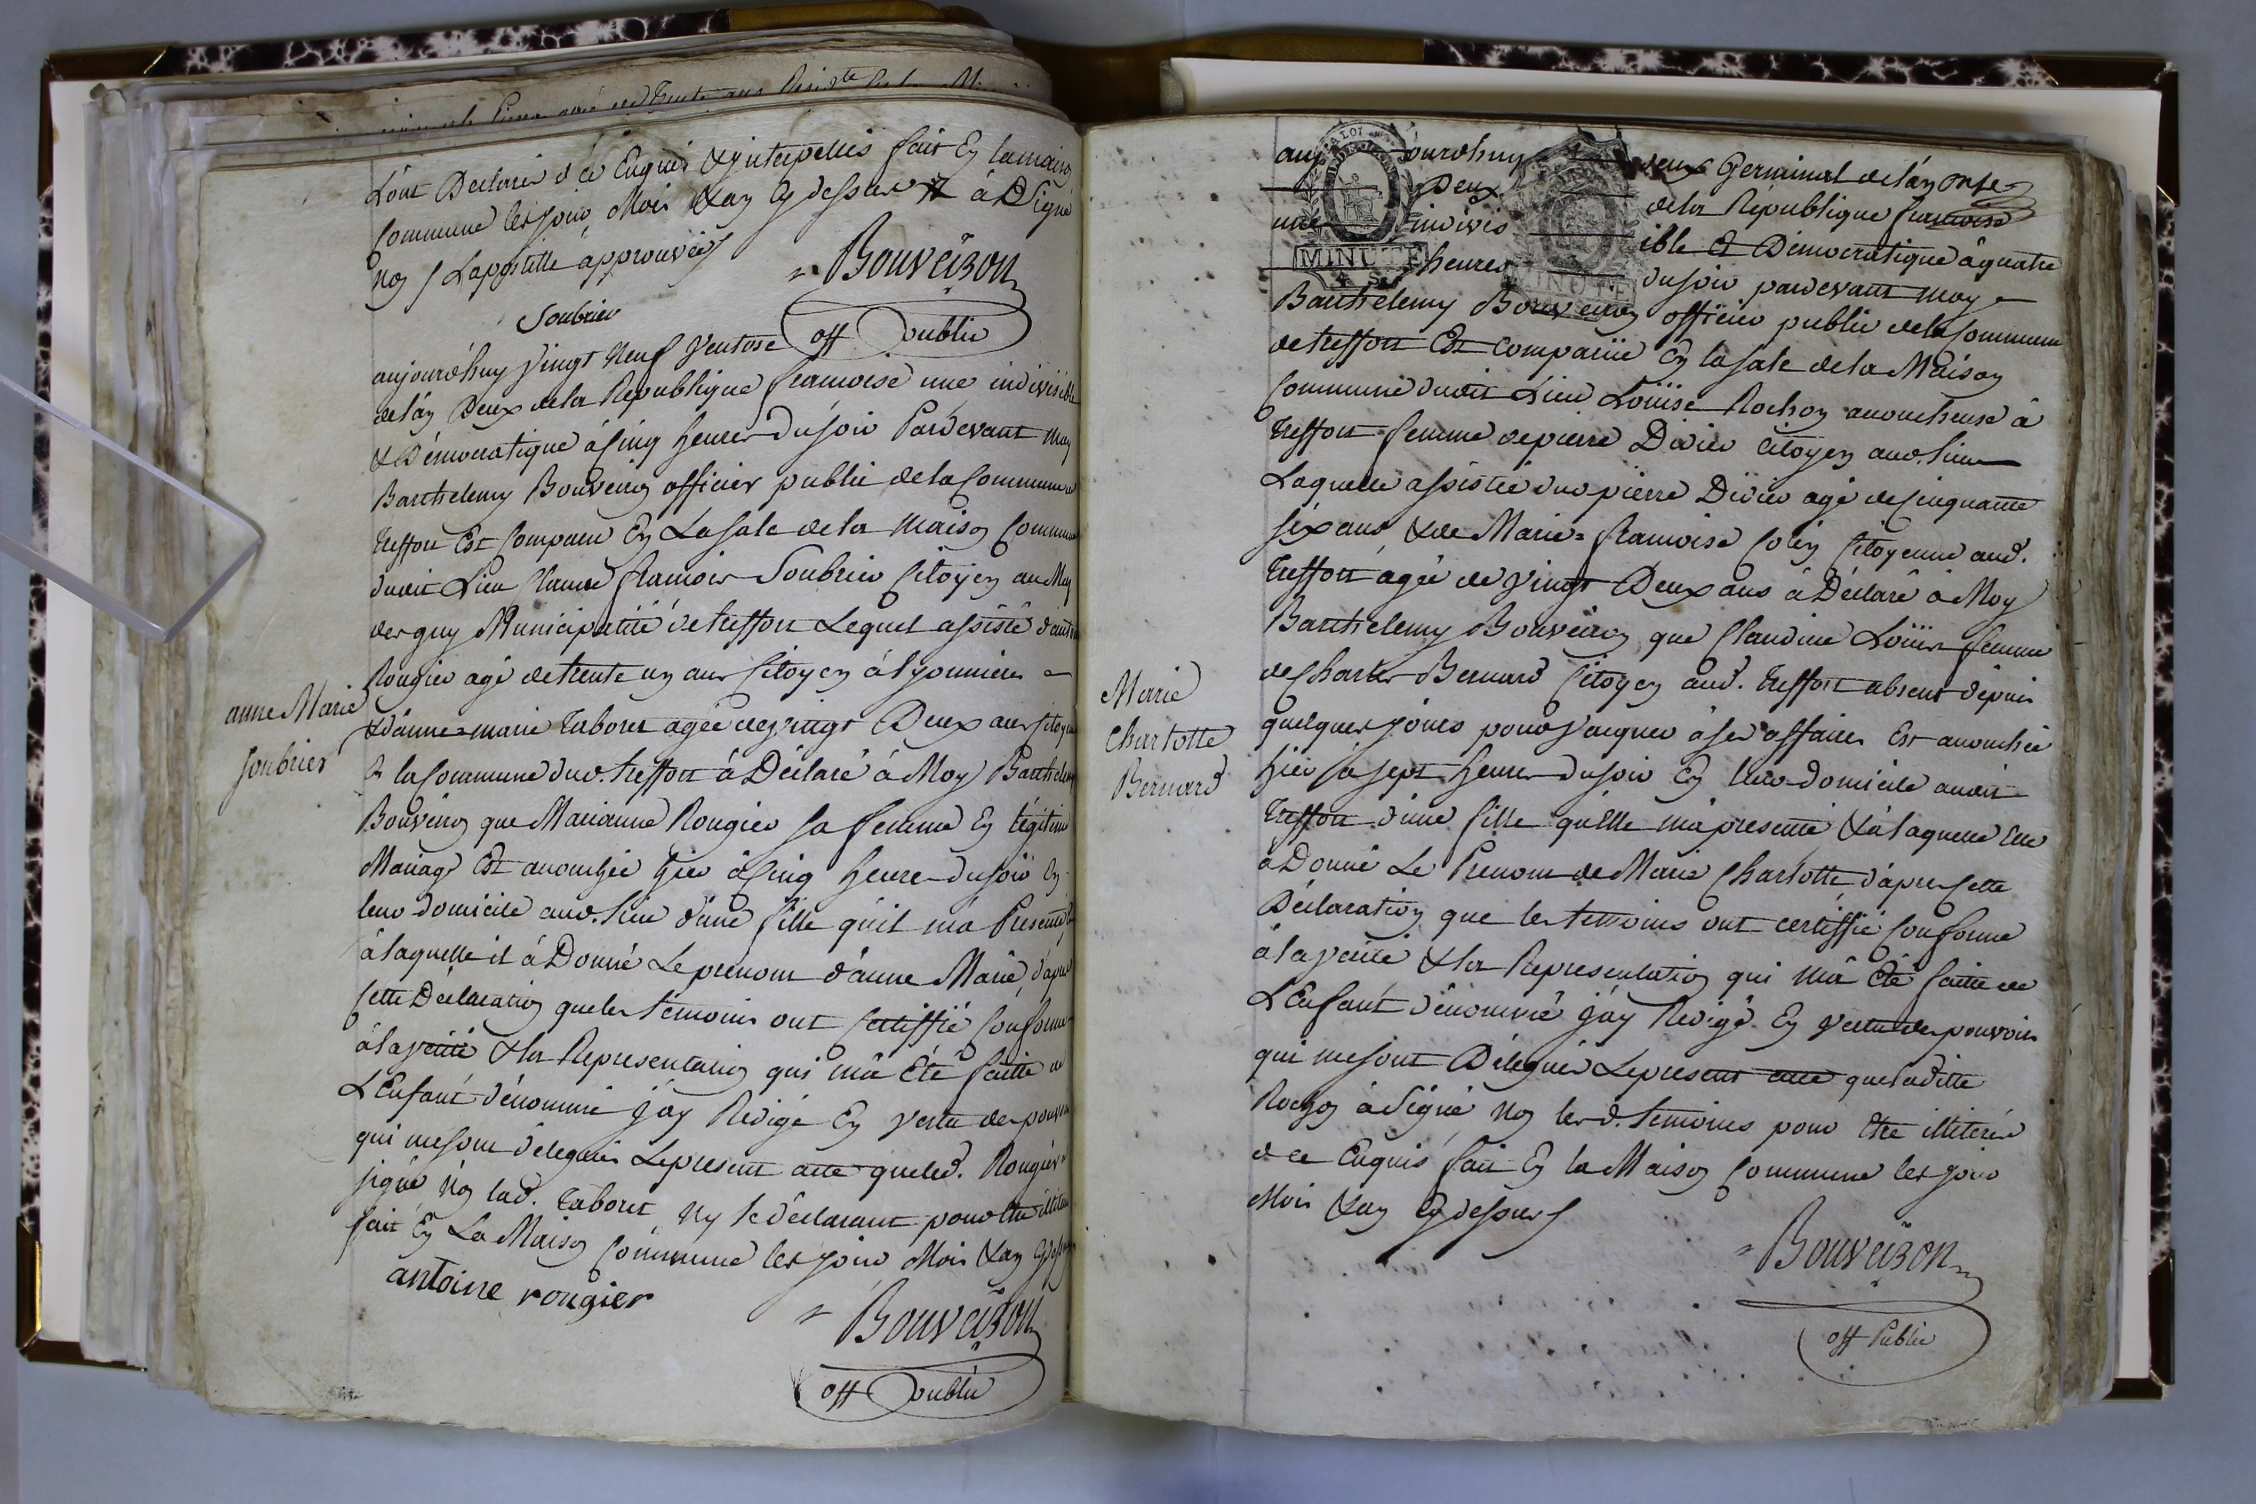 L'ont Declarés d'ce Enquis & interpellés fait En la maison
Commune les jour Mois & an Cy dessus à Signé
non Lapostille approuvée
Bouveiron
Soubrier
off public
aujourd'huy vingt Neuf Ventose
de l'an Deux de la Republique francoise une indivisible
& Démocratique à Cinq heures du soir Pardevant moy
Barthelemy Bouveiron officier public de la Commune de
treffort Est Comparu En La sale de la Maison Commune
dudit Lieu Claude francois Soubrier Citoyen au
des guy Municipalité de treffort Lequel assisté d'antoine
Rougier agé de trente un ans Citoyen à
& d'anne=marie Taboret agée de vingt Deux ans Citoyenne
la Commune dud. treffort à Déclaré à Moy Barthelemy
Bouveiron que Marianne Rougier sa femme En légitime
Mariage Est accouchée hier à Cinq heures du soir En
leur domicile aud. Lieu d'une fille qu'il m'a Presentée &
à laquelle il à Donné Le prenom d'anne Marie, d'après
Cette Déclaration que les temoins ont Certiffié Conforme
à la verité & la Representation qui m'à Eté faitte de
L'Enfant dénommé j'ay Redigé En vertu des pouvoirs
qui me sont délegués Le present acte que led. Rougier
signé non lad. Taboret, Ny le déclarant pour Etre illiterés
fait En La Maison Commune les jour Mois & an Cy dessus
antoine rougier
Bouveiron
off public
anne Marie
soubrier
aujourdhuy deux Germinal de l'an
Deux de la Republique francoise
une indivisible & Démocratique à quatre
heures du soir pardevant moy
Barthelemy Bouveiron officier public de la Commune
de treffort Est comparüe En la sale de la Maison
Commune dudit Lieu Loüise Rochon accoucheuse à
treffort femme de pierre Didier Citoyen aud. Lieu
Laquelle assistée dud. pierre Didier agé de Cinquante
six ans & de Marie=francoise Colin Citoyenne aud.
treffort agée de vingt Deux ans à Déclaré à Moy
Barthelemy Bouveiron que Claudine femme
de Charles Bernard Citoyen aud. treffort absent depuis
quelques jours pour vacquer à ses affaires Est accouchée
hier à sept heures du soir En leur domicile audit
treffort d'une fille qu'Elle m'à presentée & à laquelle Elle
à Donné Le Prenom de Marie Charlotte d'après Cette
Déclaration que les temoins ont certiffié Conforme
à la verité & la Representation qui m'à Eté faitte de
L'Enfant dénommé j'ay Redigé En vertu des pouvoirs
qui me sont Délegués Le present acte que laditte
Rochon à Signé Non les d. temoins pour Etre illiterés
de ce Enquis fait En la Maison Commune les jour
Mois & an Cy dessus
Bouveiron
off Public
Marie
Charlotte
Bernard
LA LOI
MINUTE
MINUTE